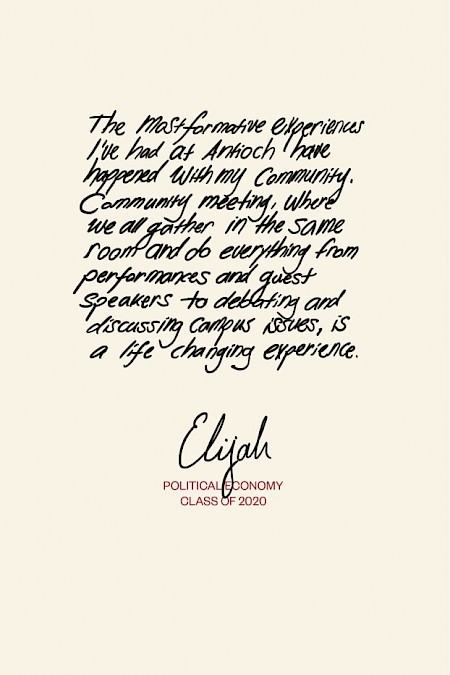 The most formative experiences
I've had at Antioch have
happened with my community.
Community meeting, where
we all gather in the same
room and do everything from
performances and guest
speakers to debating and
discussing campus issues, is
a life changing experience.
Elijah
POLITICAL ECONOMY
CLASS OF 2020